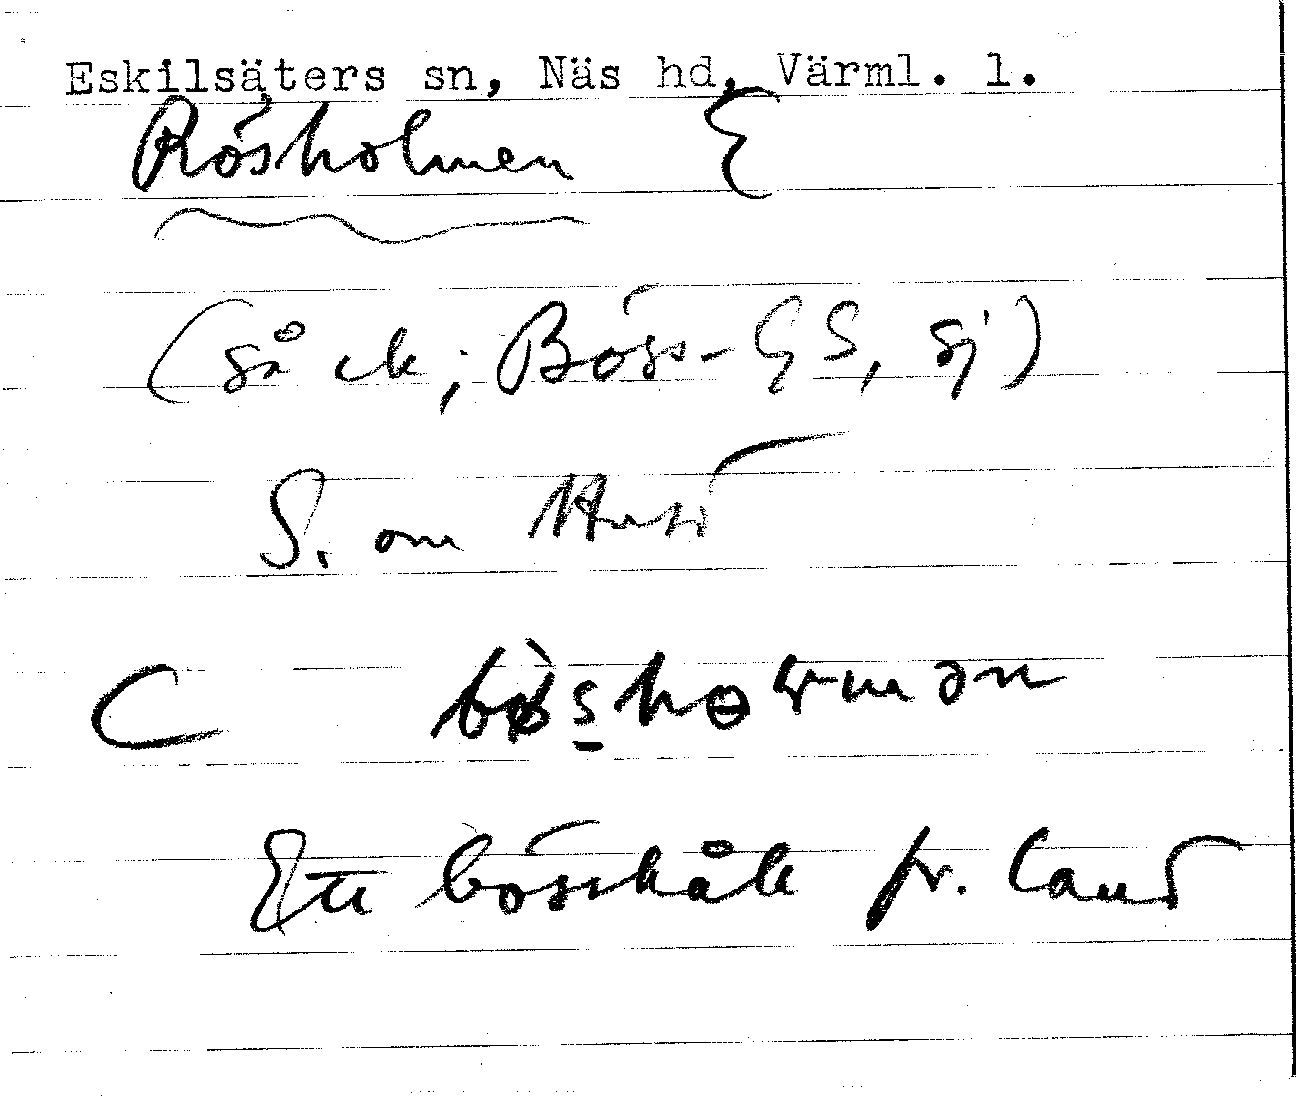 Eskilsäters sn, Näs hd, Värml. l.
Rösholmen {
(så ek; Böss- GS, sj)
S. om
bösholmən
Ett bösshåll fr. land